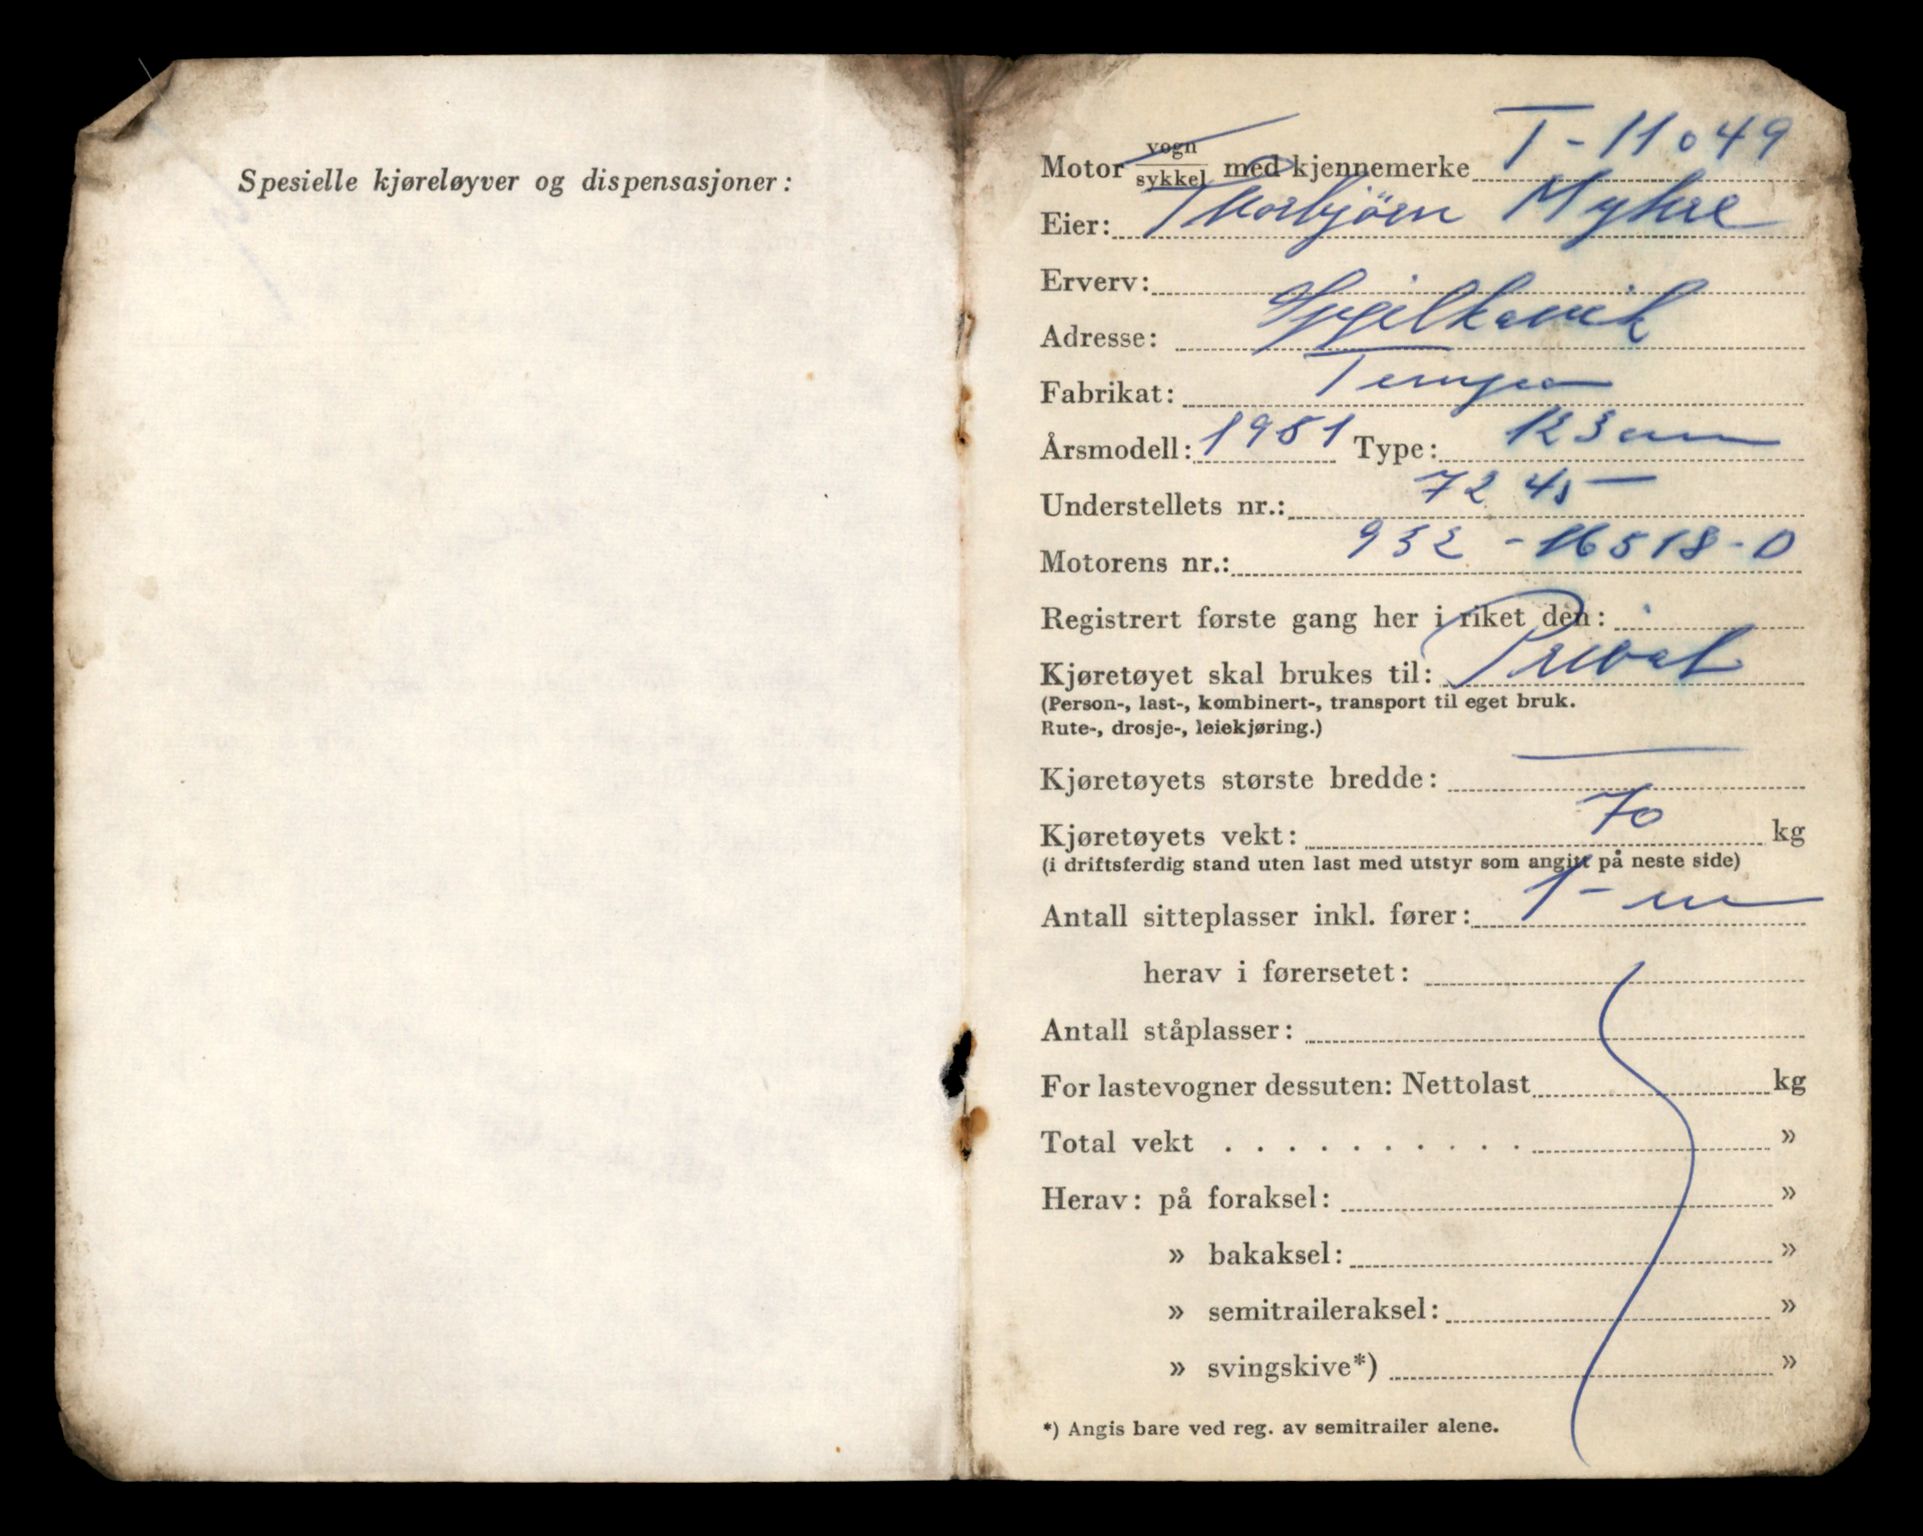 Spesielle kjøreløyver og dispensasjoner:
Motor vogn/sykkel med kjennemerke T-11049
Eier: Thorbjörn Myhre
Erverv:
Adresse: Spjelkavik
Fabrikat: Tempo
Årsmodell: 1951 Type: 123 ccm
Understellets nr.: 7245
Motorens nr.: 932-16518-D
Registrert første gang her i riket den:
Kjøretøyet skal brukes til: Privat
(Person-, last-, kombinert-, transport til eget bruk.
Rute-, drosje-, leiekjøring.)
Kjøretøyets største bredde: —
Kjøretøyets vekt: 70 kg
(i driftsferdig stand uten last med utstyr som angitt på neste side)
Antall sitteplasser inkl. fører: 1 -
herav i førersetet:
Antall ståplasser:
For lastevogner dessuten: Nettolast kg
Total vekt . . . . . . . . . . »
Herav: på foraksel: »
» bakaksel: »
» semitraileraksel: »
» svingskive*) »
*) Angis bare ved reg. av semitrailer alene.